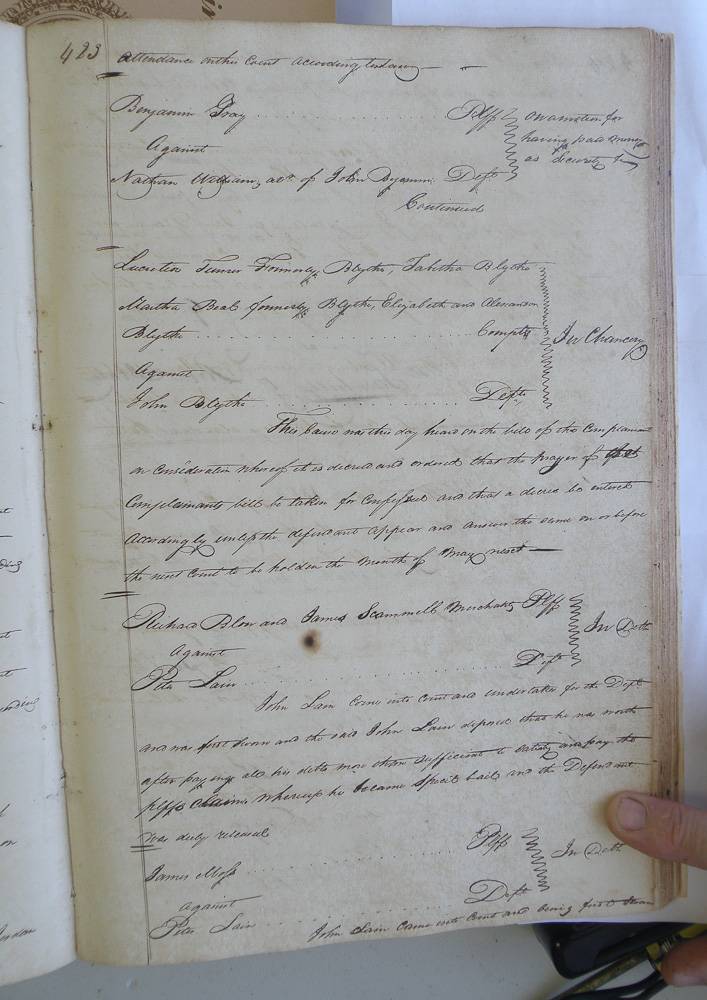 423
attendance on this Court according to law
Benjamin Gray Plff
Against
Nathan William, adr of John Benjamin Deft
on a motion for
having paid money
as Security &c
Continued
Lucretia Turner Formerly Blythe, Tabitha Blythe
Martha Beal formerly Blythe, Elizabeth and Alexander
Blythe Complts
Against
John Blythe Defts
In Chancery
This Cause was this day heard on the bill of the Complainant
on Consideration whereof it is decreed and ordered that the prayer of
Complainants bill be taken for Confessed and that a decree be entered
Accordingly unless the defendant appear and answer the same on or before
the next Court to be holden the month of May next
Richard Blow and James Scammell Merchants Plff
Against
Peter Lain Deft
In Debt
John Lain Come into Court and undertakes for the Deft
and was first sworn and the said John Lain deposed that he was worth
after paying all his debts more than sufficient to satisfy and pay the
plffs Claims whereup he became Special bail and the Defendant
was duly released
James Moss Plff
against
Peter Lain Deft
In Debt
John Lain came into Court and being first sworn